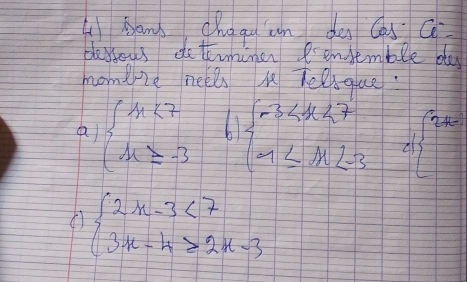 4) Dans chaqu'un des Cas Ci-
dessous determiner l'ensemble des
nombre réels x Telsque :
a) { x < 7
x ≥ -3
b) { -3 < x < 7
-1 ≤ x < -3
d) { 2x -
c) { 2x - 3 < 7
3x - 4 ≥ 2x - 3